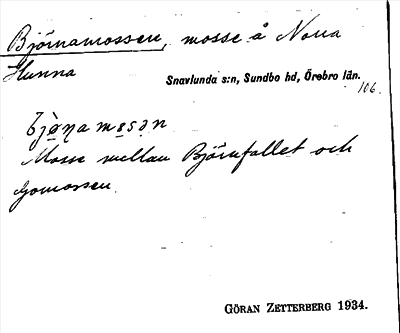 Björnamossen, mosse å Norra
Hunna
Snavlunda s:n, Sundbo hd, Örebro län.
106.
bjö̀ŋamɵsən
Mosse mellan Björnfallet och
Gomossen.
GÖRAN ZETTERBERG 1934.